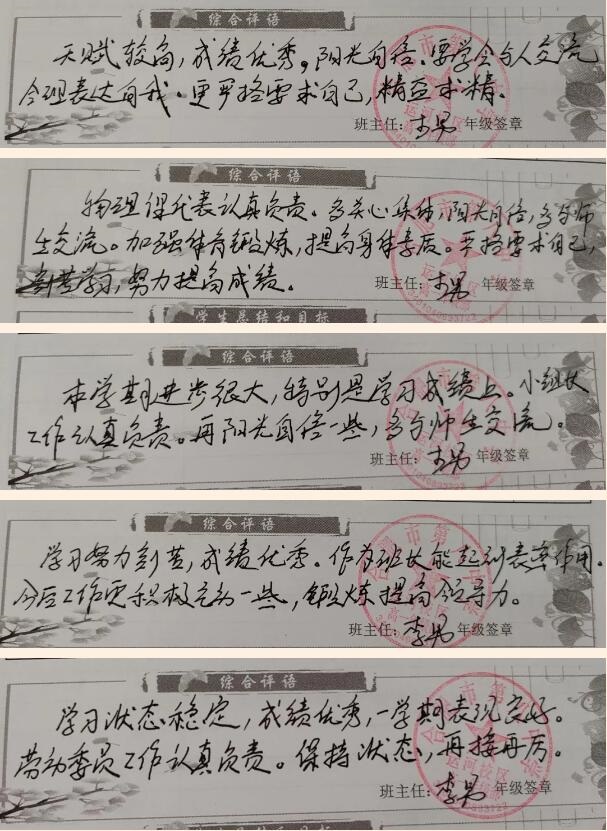 综合评语
天赋较高，成绩优秀。阳光自信。要学会与人交流
合理表达自我。更严格要求自己，精益求精。
班主任： 年级签章
综合评语
物理课代表认真负责。多关心集体，阳光自信，多与师
生交流。加强体育锻炼，提高身体素质。严格要求自己，
刻苦学习，努力提高成绩。
班主任： 年级签章
学生总结和目标
综合评语
本学期进步很大，特别是学习成绩上。小组长
工作认真负责。再阳光自信一些，多与师生交流。
班主任： 年级签章
综合评语
学习努力刻苦，成绩优秀。作为班长能起到表率作用。
今后工作更积极主动一些，锻炼提高领导力。
班主任： 年级签章
综合评语
学习状态稳定，成绩优秀，一学期表现良好。
劳动委员工作认真负责。保持状态，再接再厉。
班主任： 年级签章